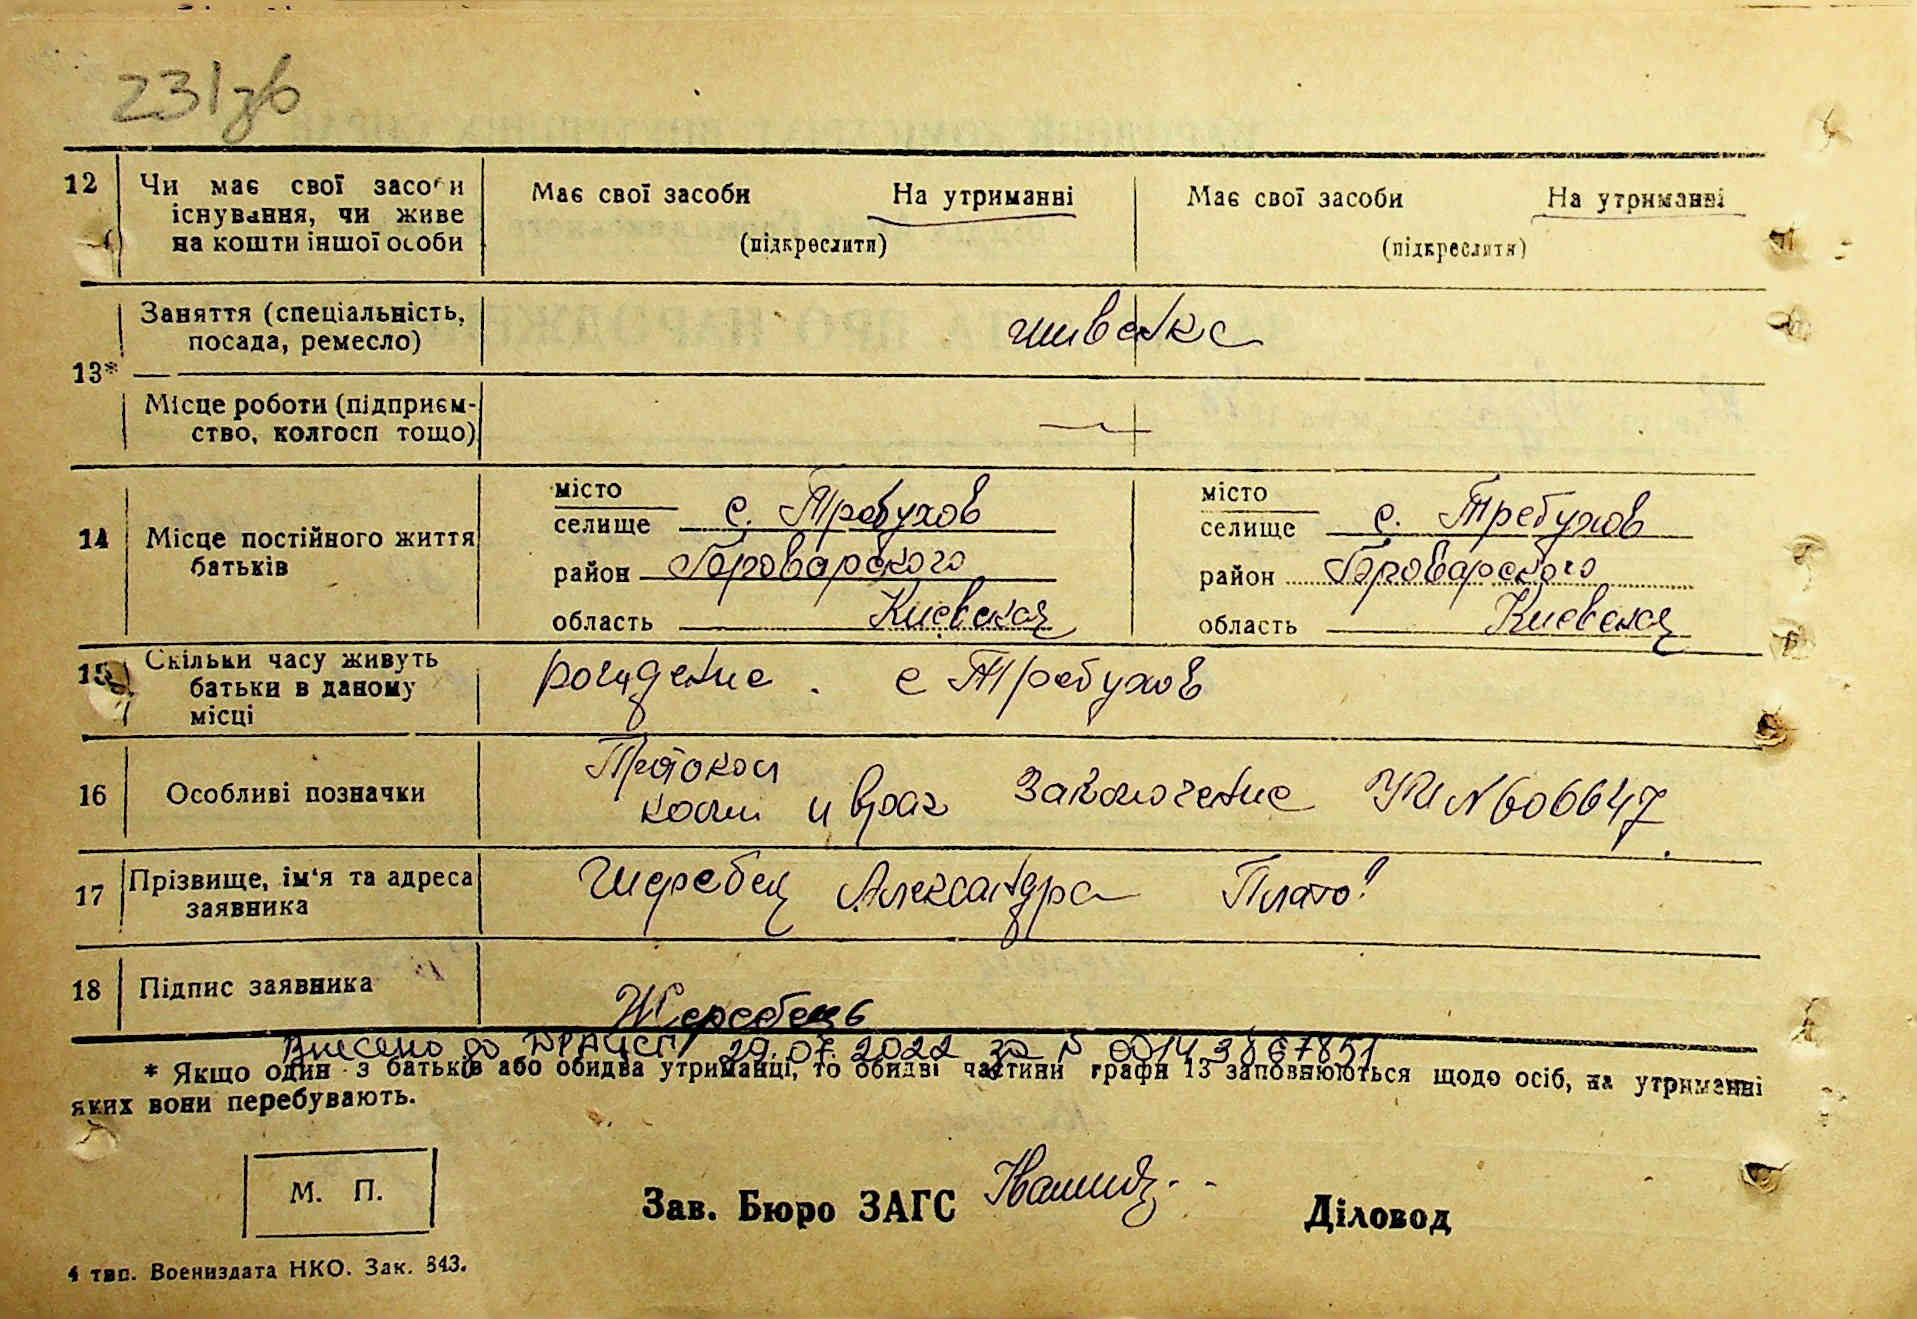 231зв
12 Чи має свої засоби Має свої засоби На утриманні Має свої засоби На утриманні
існування, чи живе
на кошти іншої особи (підкреслити) (підкреслити)
Заняття (спеціальність,
посада, ремесло)
13*
Місце роботи (підприєм-
ство, колгосп тощо)
14 Місце постійного життя
батьків
місто
селище с. Требухов
район Броварского
область Киевская
місто
селище с. Требухов
район Броварского
область Киевская
15 Скільки часу живуть рождение. с Требухов
батьки в даному
місці
16 Особливі позначки Протокол
и врач Заключение №606647
17 Прізвище, ім'я та адреса Жеребец Александра
заявника
18 Підпис заявника Жеребець
Внесено до ДРАЦСГ 29.07.2022 за № 00143867851
* Якщо один з батьків або обидва утриманці, то обидві частини графи 13 заповнюються щодо осіб, на утриманні
яких вони перебувають.
М. П.
Зав. Бюро ЗАГС Діловод
4 тип. Воениздата НКО. Зак. 843.